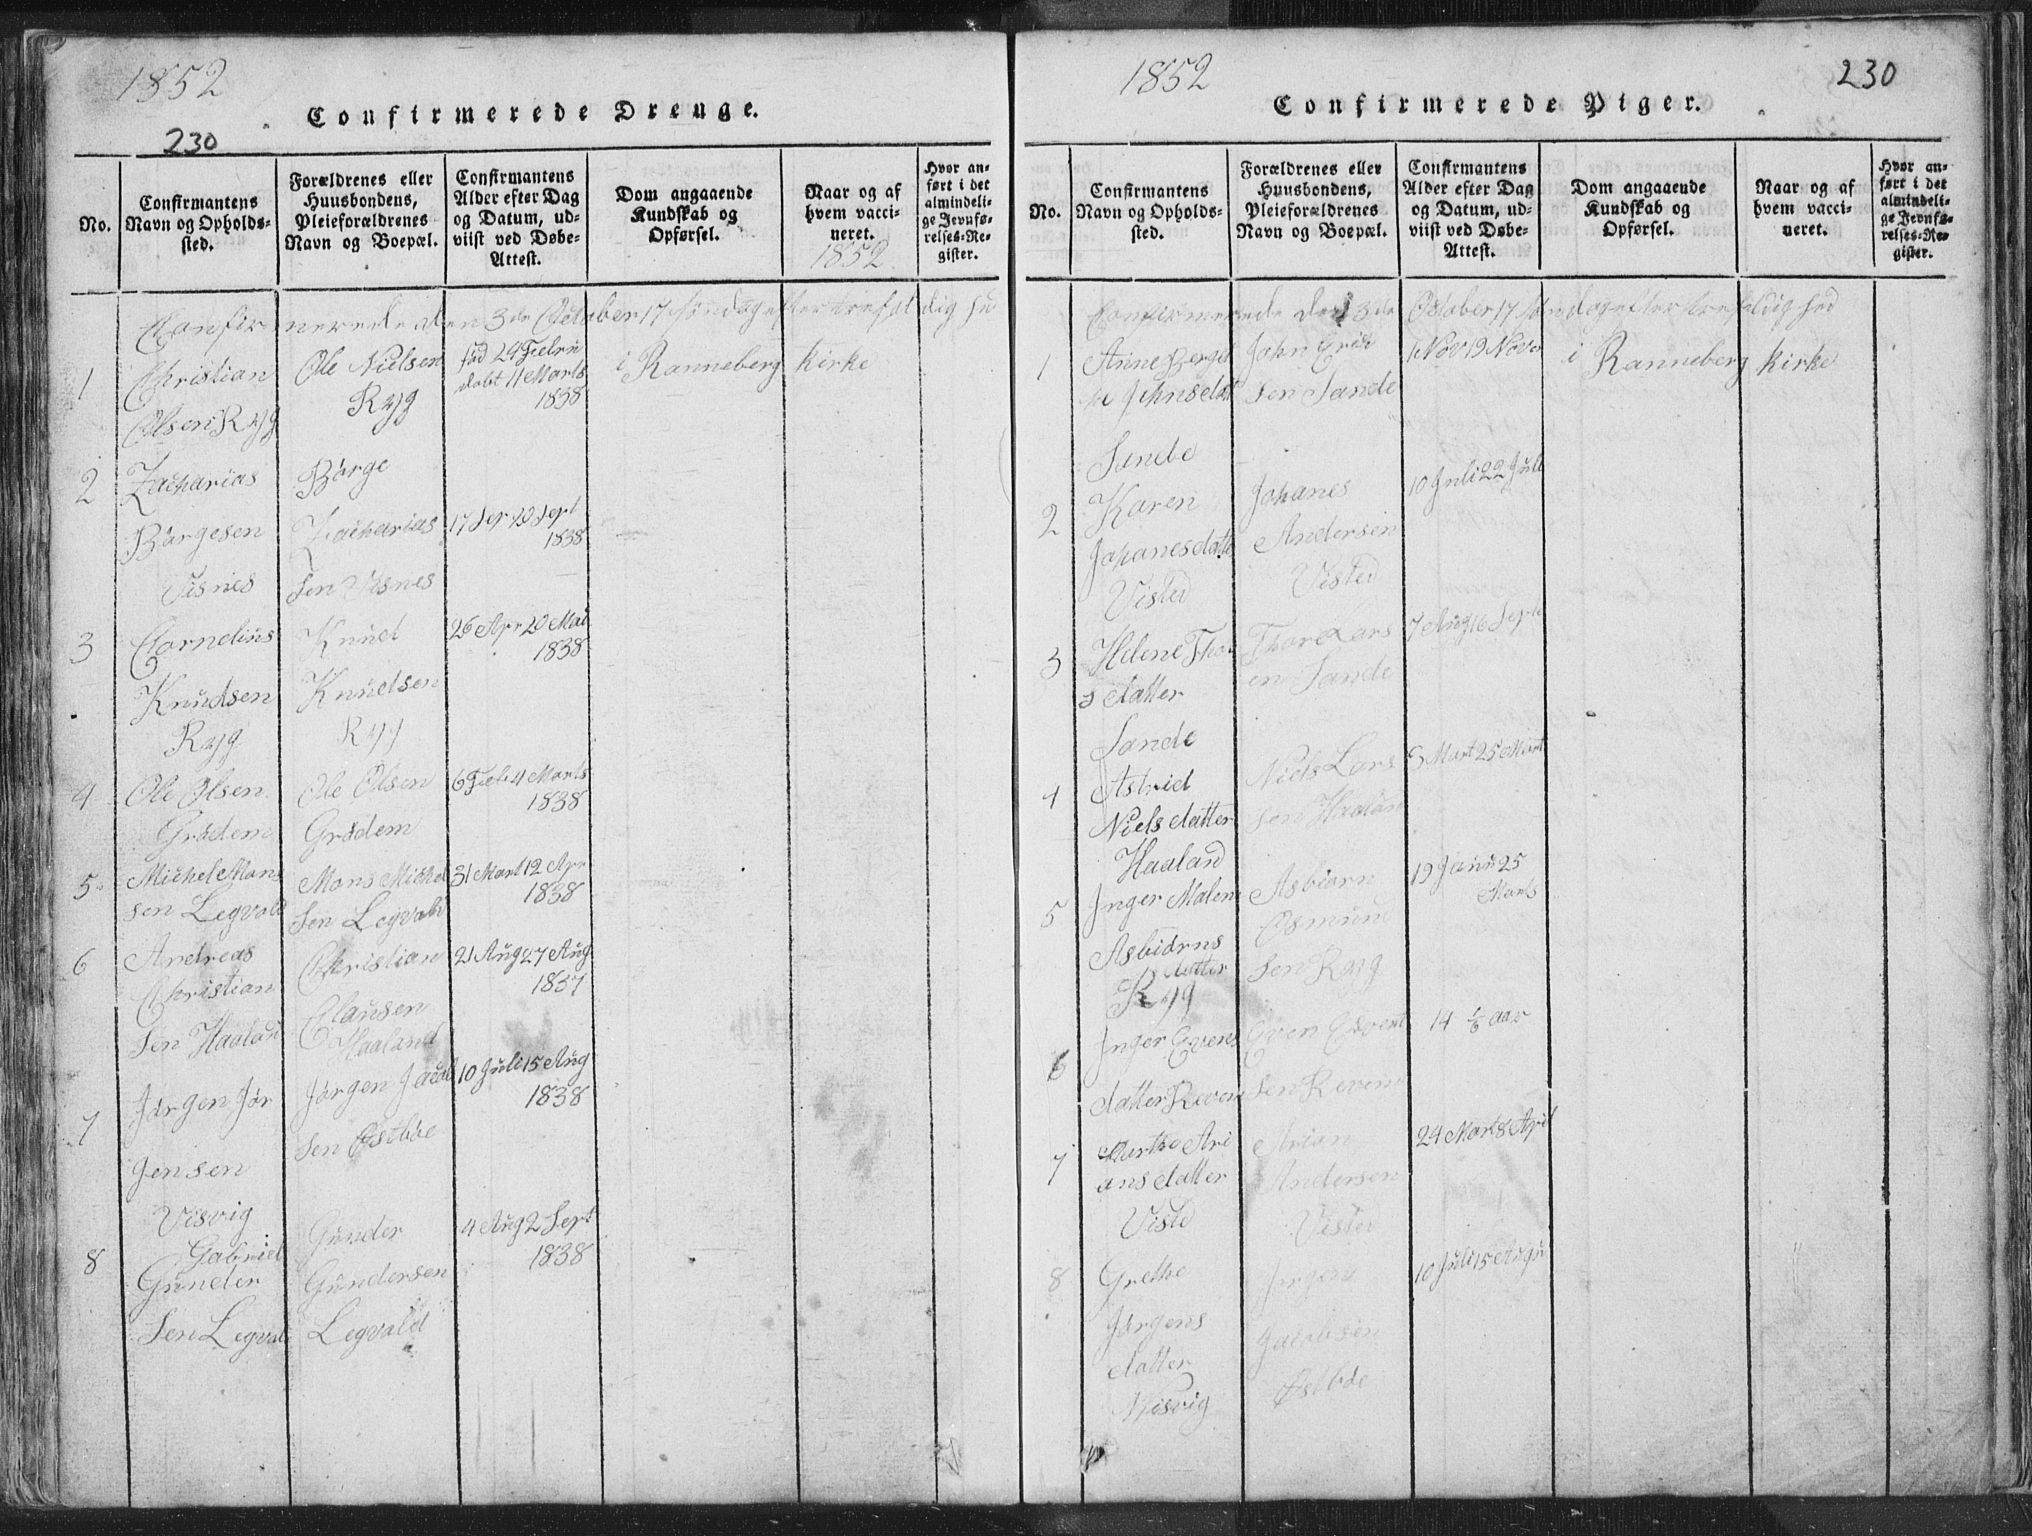 1852
Confirmerede Drenge.
230
No.
Confirmantens
Navn og Opholds-
sted.
Forældrenes eller
Huusbondens,
Pleieforældrenes
Navn og Boepæl.
Confirmantens
Alder efter Dag
og Datum, ud-
viist ved Døbe-
Attest.
Dom angaaende
Kundskab og
Opførsel.
Naar og af
hvem vacci-
neret.
1852
Hvor an-
ført i det
almindeli-
ge Jevnfø-
relses-Re-
gister.
Confirmerede den 3de October 17 Søndag efter trefoldig he
1
Christian
Olsen Ryg
Ole Nielsen
Ryg
fød 24 Febru
døbt 11 Marts
1838
i Ranneberg kirke
2
Zacharias
Børgesen
Visnes
Børge
Zacharias
sen Visnes
17 Sep 20 Sept
1838
3
Cornelius
Knudsen
Ryg
Knud
Knudsen
Ryg
26 Apr 20 Mai
1838
4
Ole Olsen
Grødem
Ole Olsen
Grødem
6 Feb 4 Marts
1838
5
Michel Mons
sen Legvold
Mons Michel
sen Legvold
31 Mart 12 Apr
1838
6
Andreas
Christian
sen Haalan
Christian
Clausen
Haaland
21 Aug 27 Aug
1837
7
Jørgen Jør
jensen
Visvig
Jørgen Jacob
sen Østbøe
10 Juli 15 Aug
1838
8
Gabriel
Gunder
sen Legvol
Gunder
Gundersen
Legvold
4 Aug 2 Sept
1838
1852
230
Confirmerede Piger.
No.
Confirmantens
Navn og Opholds-
sted.
Forældrenes eller
Huusbondens,
Pleieforældrenes
Navn og Boepæl.
Confirmantens
Alder efter Dag
og Datum, ud-
viist ved Døbe-
Attest.
Dom angaaende
Kundskab og
Opførsel.
Naar og af
hvem vacci-
neret.
Hvor an-
ført i det
almindeli-
ge Jevnfø-
relses-Re-
gister.
Confirmerede den 3de October 17 Søndag efter trefoldig hed
1
Anne Berget
Johnsdat
Sande
John Erik
sen Sande
1 Nov 19 Nov
i Ranneberg kirke
2
Karen
Johanesdatte
Visted
Johanes
Andersen
Visted
10 Juli 22 Juli
3
Helene Thor
s datter
Sande
Thore Lars
en Sande
7 Aug 16 Sept
4
Astrid
Niels datter
Haaland
Niels Lars
sen Haalan
5 Mart 25 Mart
5
Inger Malene
Asbiørns
datter
Ryg
Asbiørn
Osmund
sen Ryg
19 Janu 25
Marts
6
Inger Evens
datter Reven
Even Edvent
sen Reven
14 1/6 aar
7
Marthe Ari
ans datter
Viste
Arian
Andersen
Visted
24 Mart 8 April
8
Grethe
Jørgens
datter
Misvig
Jørgen
Jacobsen
Østbøe
10 Juli 15 Augu